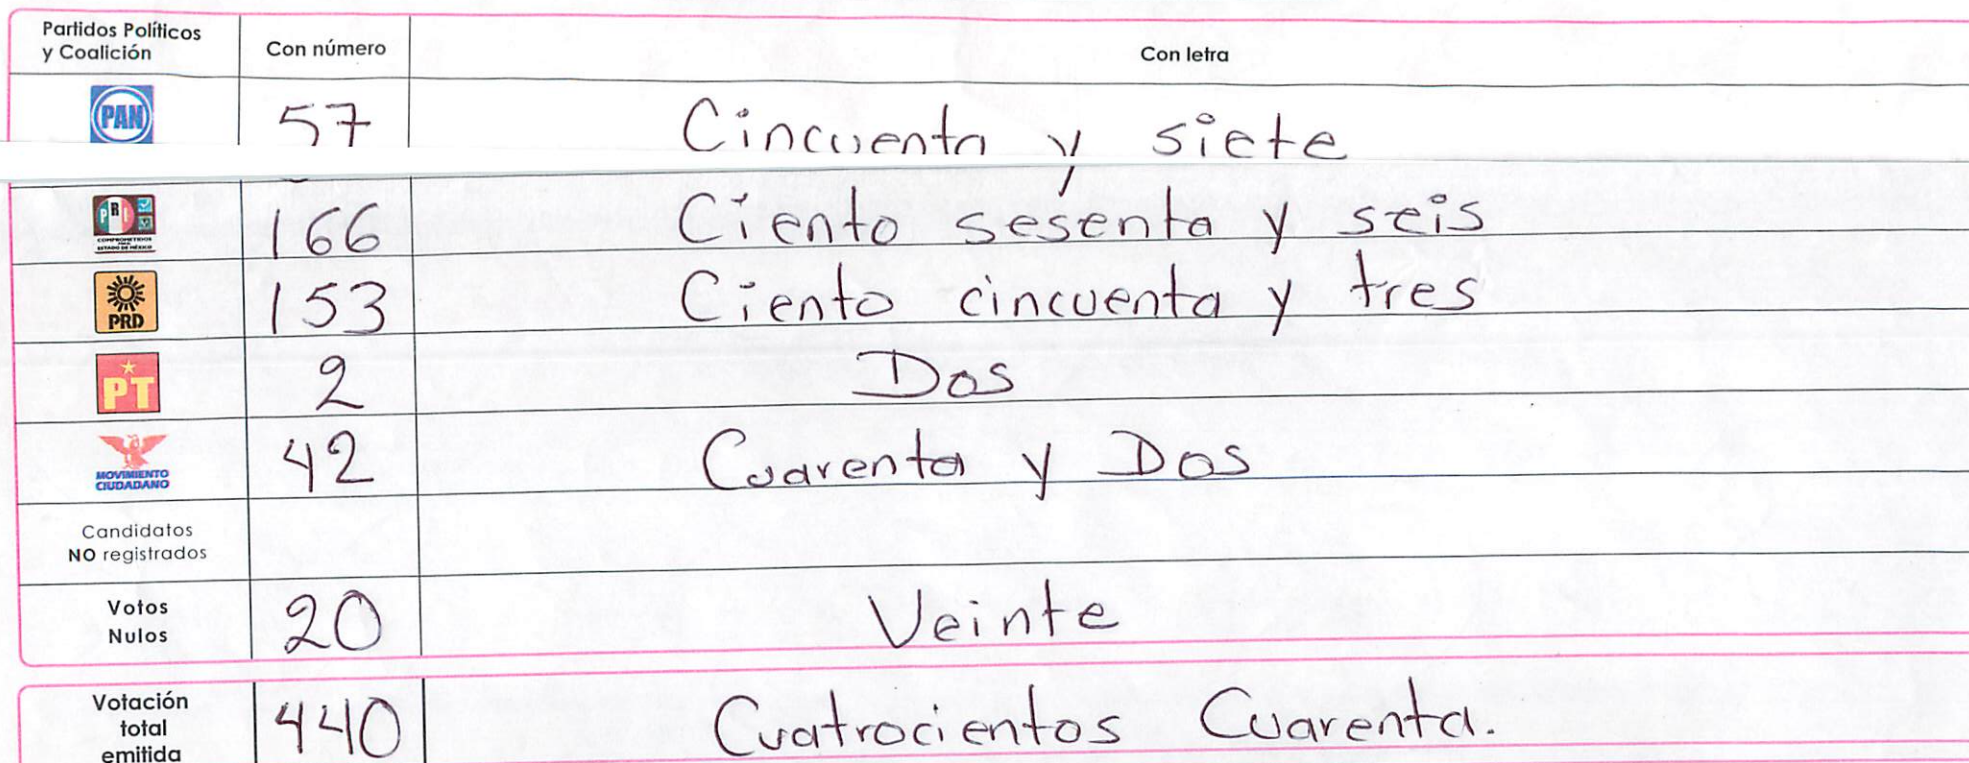 Partidos Políticos
y Coalición
Con número
Con letra
PAN
57
Cincuenta y siete
PRI
COMPROMETIDOS
ESTADO DE MÉXICO
166
Ciento sesenta y seis
PRD
153
Ciento cincuenta y tres
PT
2
Dos
MOVIMIENTO
CIUDADANO
42
Cuarenta y Dos
Candidatos
NO registrados
Votos
Nulos
20
Veinte
Votación
total
emitida
440
Cuatrocientos Cuarenta.